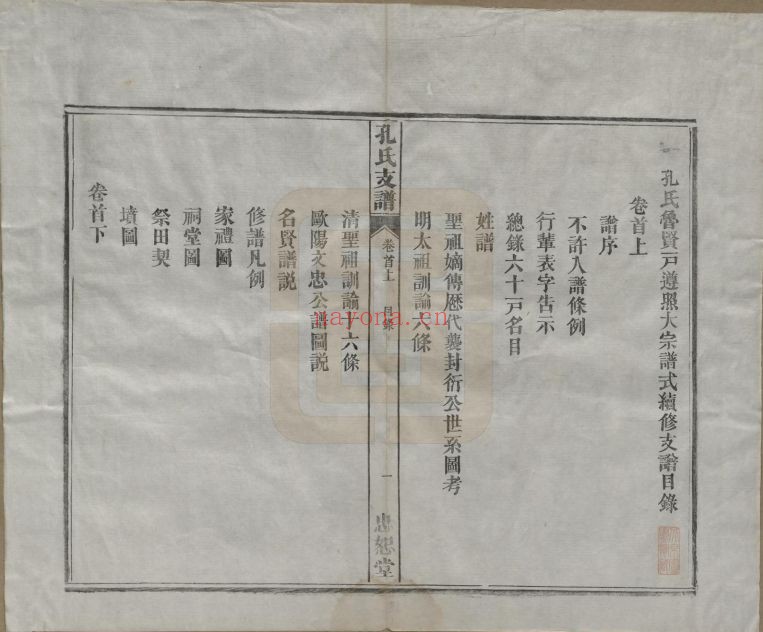 孔氏魯賢戸遵照大宗譜式續修支譜目錄
卷首上
譜序
不許入譜條例
行輩表字告示
總錄六十戸名目
姓譜
聖祖嫡傳歷代襲封衍公世系圖考
明太祖訓諭六條
孔氏支譜
卷首上
目錄
一
忠恕堂
清聖祖訓諭十六條
歐陽文忠公譜圖説
名賢譜説
修譜凡例
家禮圖
祠堂圖
祭田契
墳圖
卷首下